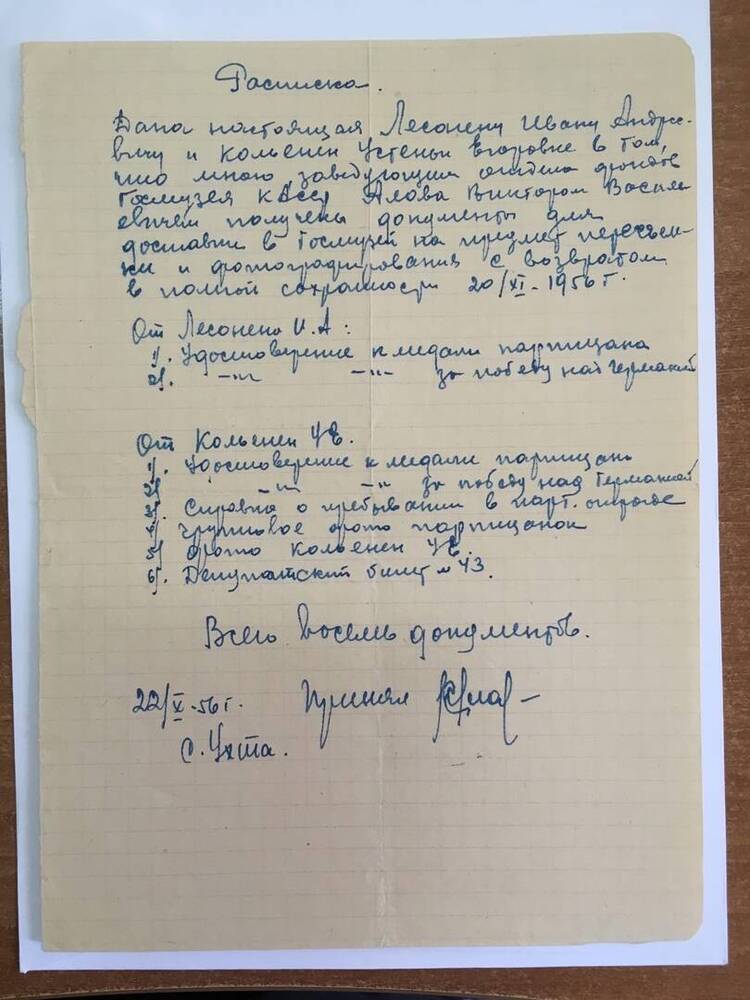 Расписка.
Дана настоящая Лесонену Ивану Андре-
вичу и Кольенен Устеньи Егоровне в том,
что мною заведующим отдела фондов
Госмузея КАССР Алова Виктором Василь
евичем получены документы для
доставки в Госмузей на предмет пересъем-
ки и фотографирования с возвратом
в полной сохранности 20/XI-1956 г.
От Лесонена И.А:
1). Удостоверение к медали партизана
2). -"- -"- за победу над Германией
От Кольенен УЕ.
1). Удостоверение к медали партизан
2). -"- -"- за победу над Германией
3). Справка о пребывании в парт. отряде
4). групповое фото партизанок
5) фото Кольенен УЕ.
6). Депутатский билет № 43.
Всего восемь документов.
22/X-56 г. Принял
с. Ухта.